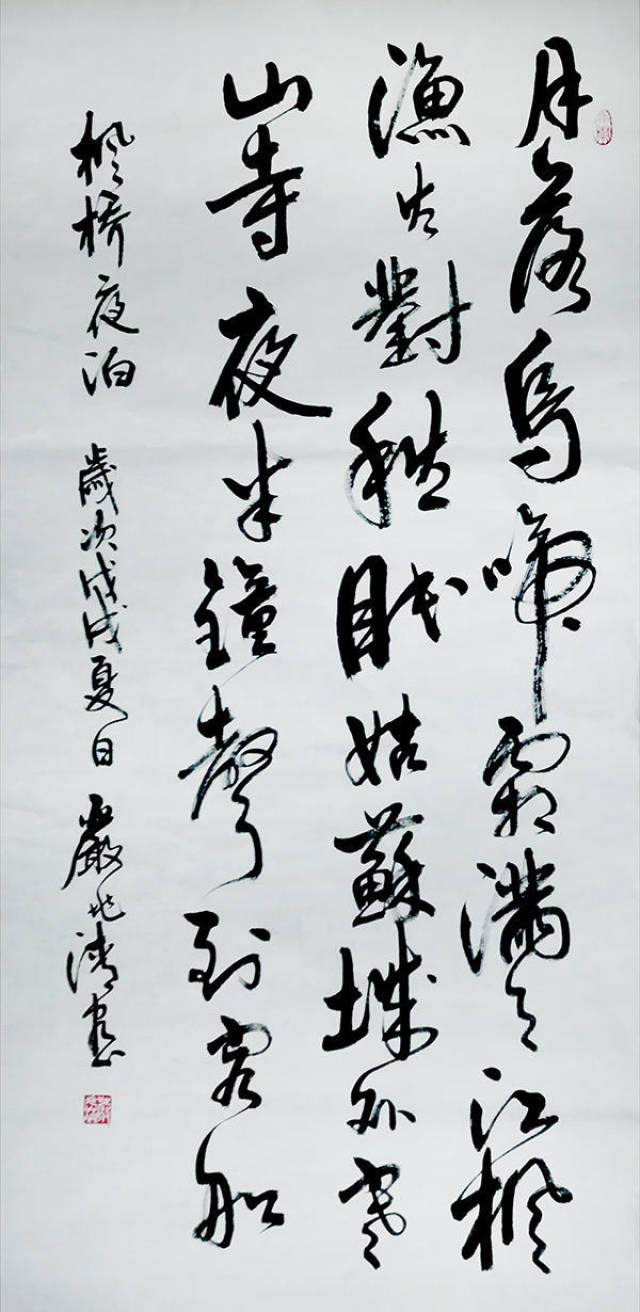 月落烏啼霜滿天江楓
漁火對愁眠姑蘇城外寒
山寺夜半鐘聲到客船
楓橋夜泊 歲次戊戌夏日 嚴書